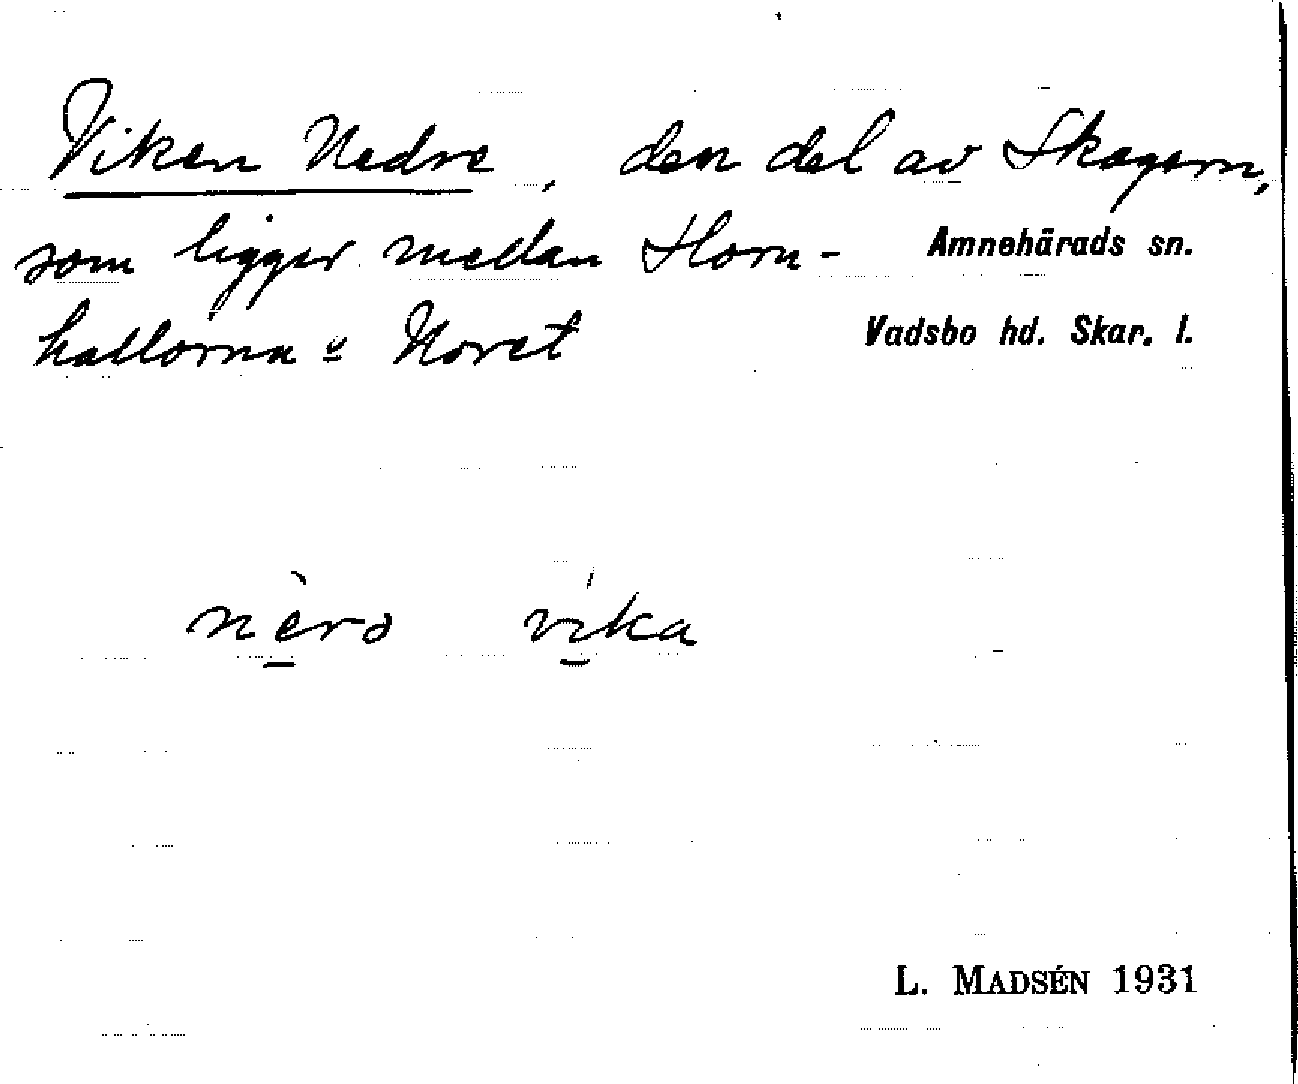 Viken Nedre, den del av Skagern,
som ligger medan Horn-
Amnehärads sn.
hallorna o Noret
Vadsbo hd. Skar. l.
nèrə víka
L. MADSÉN 1931